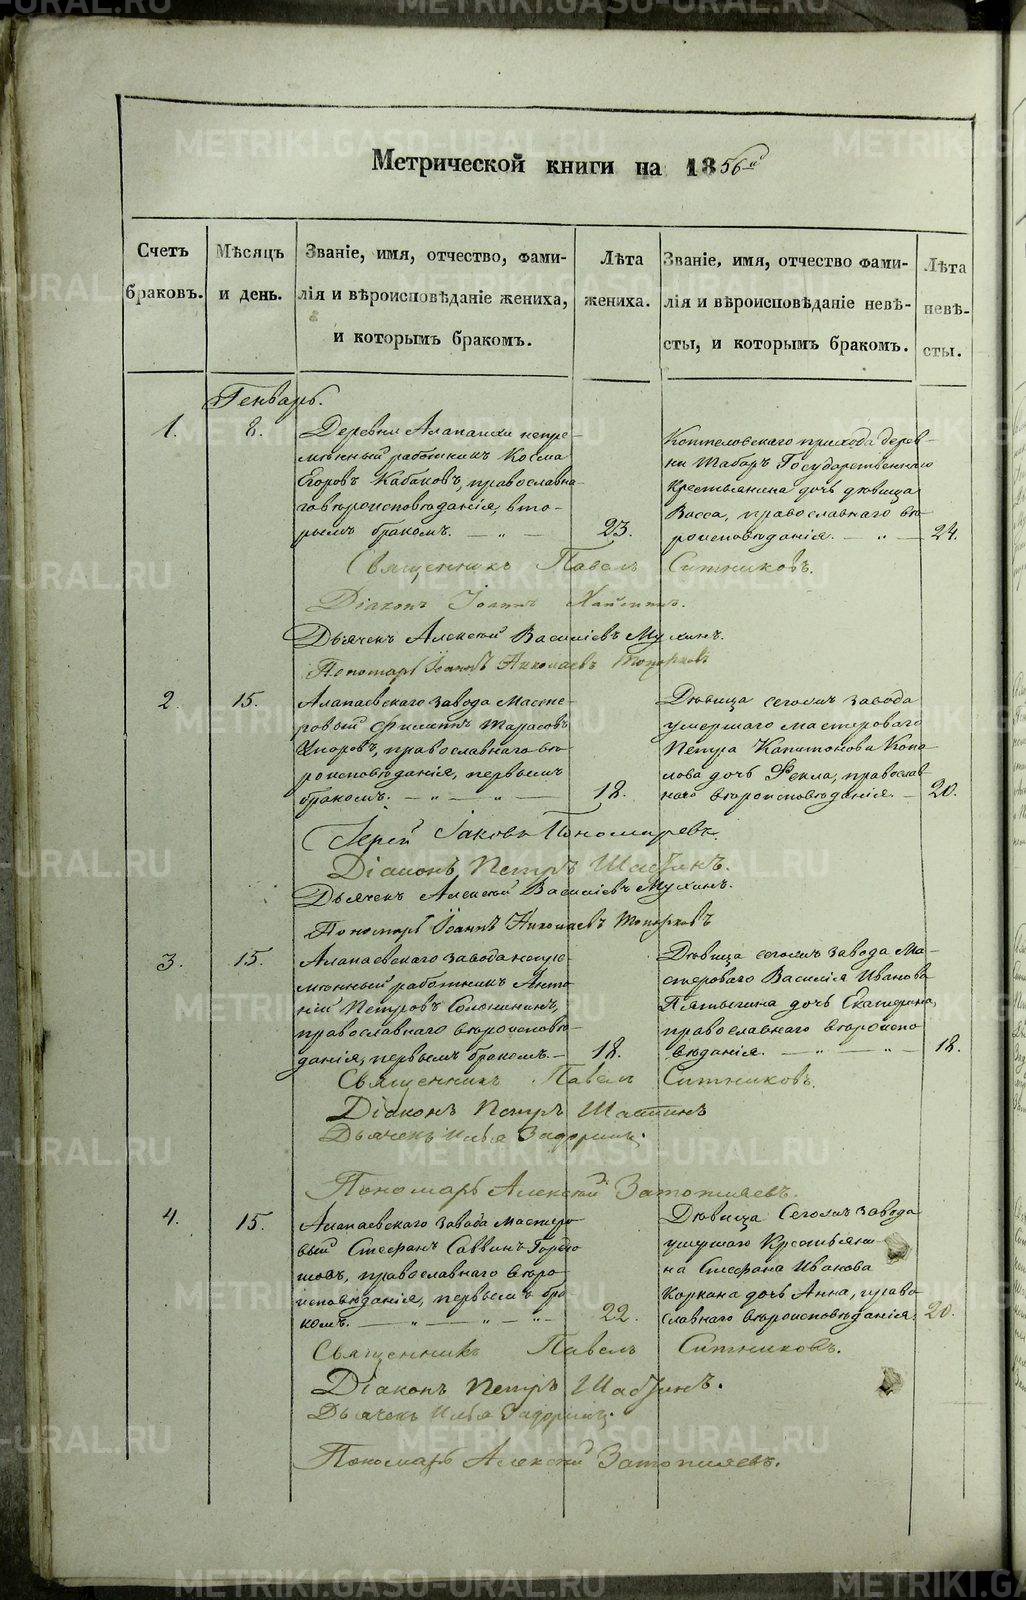 Метрической книги на 1856й
Счетъ браковъ.
Мѣсяцъ и день.
Званіе, имя, отчество, фами-
лія и вѣроисповѣданіе жениха,
и которымъ бракомъ.
Лѣта жениха.
Званіе, имя, отчество фами-
лія и вѣроисповѣданіе невѣ-
сты, и которымъ бракомъ.
Лѣта невѣ-
сты.
Генварь.
1.
8.
Деревни Алапаихи непре-
мѣнный работникъ Косма
Егоровъ Кабаковъ, православна-
го вѣроисповѣданія, вто-
рымъ бракомъ.
23.
прихода дерев-
ни Шабаръ Государственнаго
Крестьянина дочь дѣвица
Васса, православнаго вѣ-
роисповѣданія.
24.
Священникъ Павелъ Ситниковъ.
Діаконъ Іоаннъ
Дьячекъ Алексѣй Василіевъ Мухинъ.
Пономарь Іоаннъ Николаевъ Топорковъ
2.
15.
Алапаевскаго завода Масте-
ровый Филиппъ Тарасовъ
православнаго вѣ-
роисповѣданія, первымъ
бракомъ.
18.
Дѣвица сегожъ завода
умершаго мастероваго
Петра Капитонова Коно-
лова дочь Фекла, православ-
наго вѣроисповѣданія.
20.
Іерей Іаковъ Пономаревъ.
Діаконъ Петръ Шастинъ.
Дьячекъ Алексѣй Василіевъ Мухинъ.
Пономарь Іоаннъ Николаевъ Топорковъ
3.
15.
Алапаевскаго завода непре-
мѣнный работникъ Анто-
ній Петровъ Солонининъ,
православнаго вѣроисповѣ-
данія, первымъ бракомъ.
18.
Дѣвица сегожъ завода Ма-
стероваго Василія Иванова
Пятыгина дочь Екатерина,
православнаго вѣроиспо-
вѣданія.
18.
Священникъ Павелъ Ситниковъ.
Діаконъ Петръ Шастинъ
Дьячекъ Илья Задоринъ.
Пономарь Алексѣй Затопляевъ.
4.
15.
Алапаевскаго завода Мастеро-
вый Стефанъ Саввинъ Гордѣ-
православнаго вѣро-
исповѣданія, первымъ бра-
комъ.
22.
Дѣвица Сегожъ завода
умершаго Крестьяни-
на Стефана Иванова
Коркина дочь Анна, право-
славнаго вѣроисповѣданія.
20.
Священникъ Павелъ Ситниковъ.
Діаконъ Петръ Шастинъ.
Дьячекъ Илья Задоринъ.
Пономарь Алексѣй Затопляевъ.
METRIKI.GASO-URAL.RU